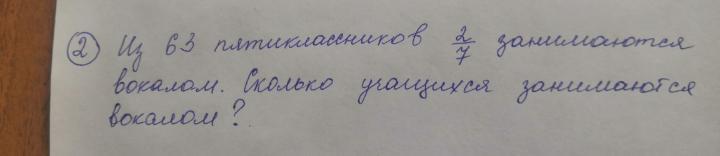 2 Из 63 пятиклассников 2/7 занимаются
вокалом. Сколько учащихся занимаются
вокалом?